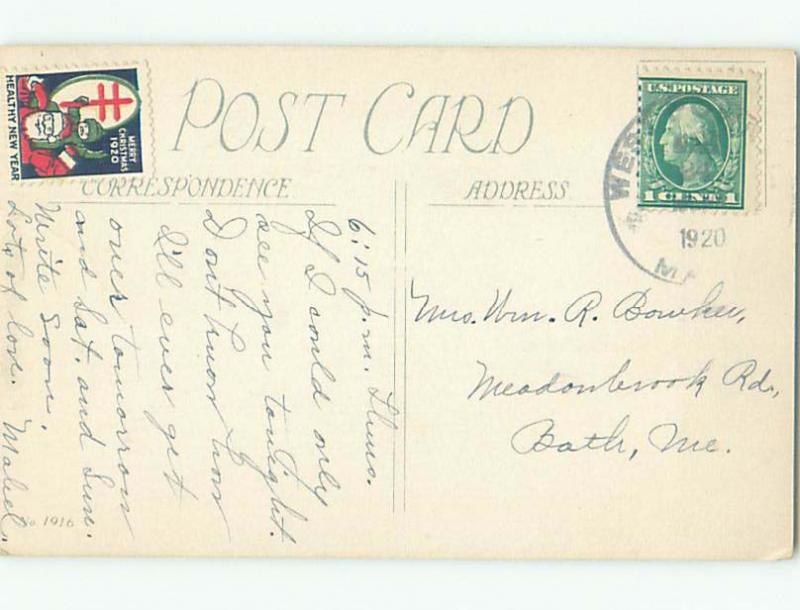 POST CARD
CORRESPONDENCE
ADDRESS
MERRY
CHRISTMAS
1920
HEALTHY NEW YEAR
U.S. POSTAGE
1 CENT 1
WES
1920
6:15 p.m. Thurs.
If I could only
see you tonight.
Don't know how
I'll ever get
over tomorrow
and Sat. and Sun.
Write soon.
Lots of love. Mabel.
Mrs. Wm. R. Bowker,
Meadowbrook Rd.,
Bath, Me.
No 1916